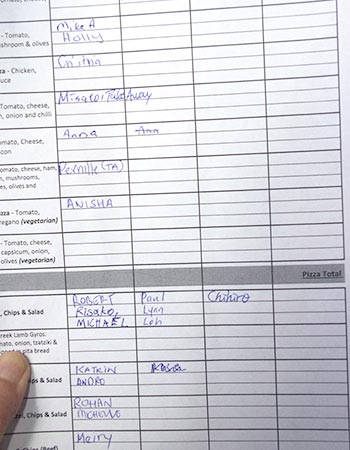 - Tomato,
shroom & olives
Mike A
Holly
- Chicken,
uce
Tomato, cheese,
, onion and chilli
Misako: TakeAway
omato, Cheese,
con
Anna
omato, cheese, ham,
, mushrooms,
es, olives and
Pernille (TA)
zza - Tomato,
regano (vegetarian)
ANISHA
- Tomato, cheese,
capsicum, onion,
olives (vegetarian)
Pizza Total
, Chips & Salad
ROBERT Paul Chihiro
Risako, Lynn
MICHAEL Loh
reek Lamb Gyros:
ato, onion, tzatziki &
pita bread
ips & Salad
KATRIN
ANDRO
el, Chips & Salad
ROHAN
MICHELLE
Chips (Beef)
Meiry